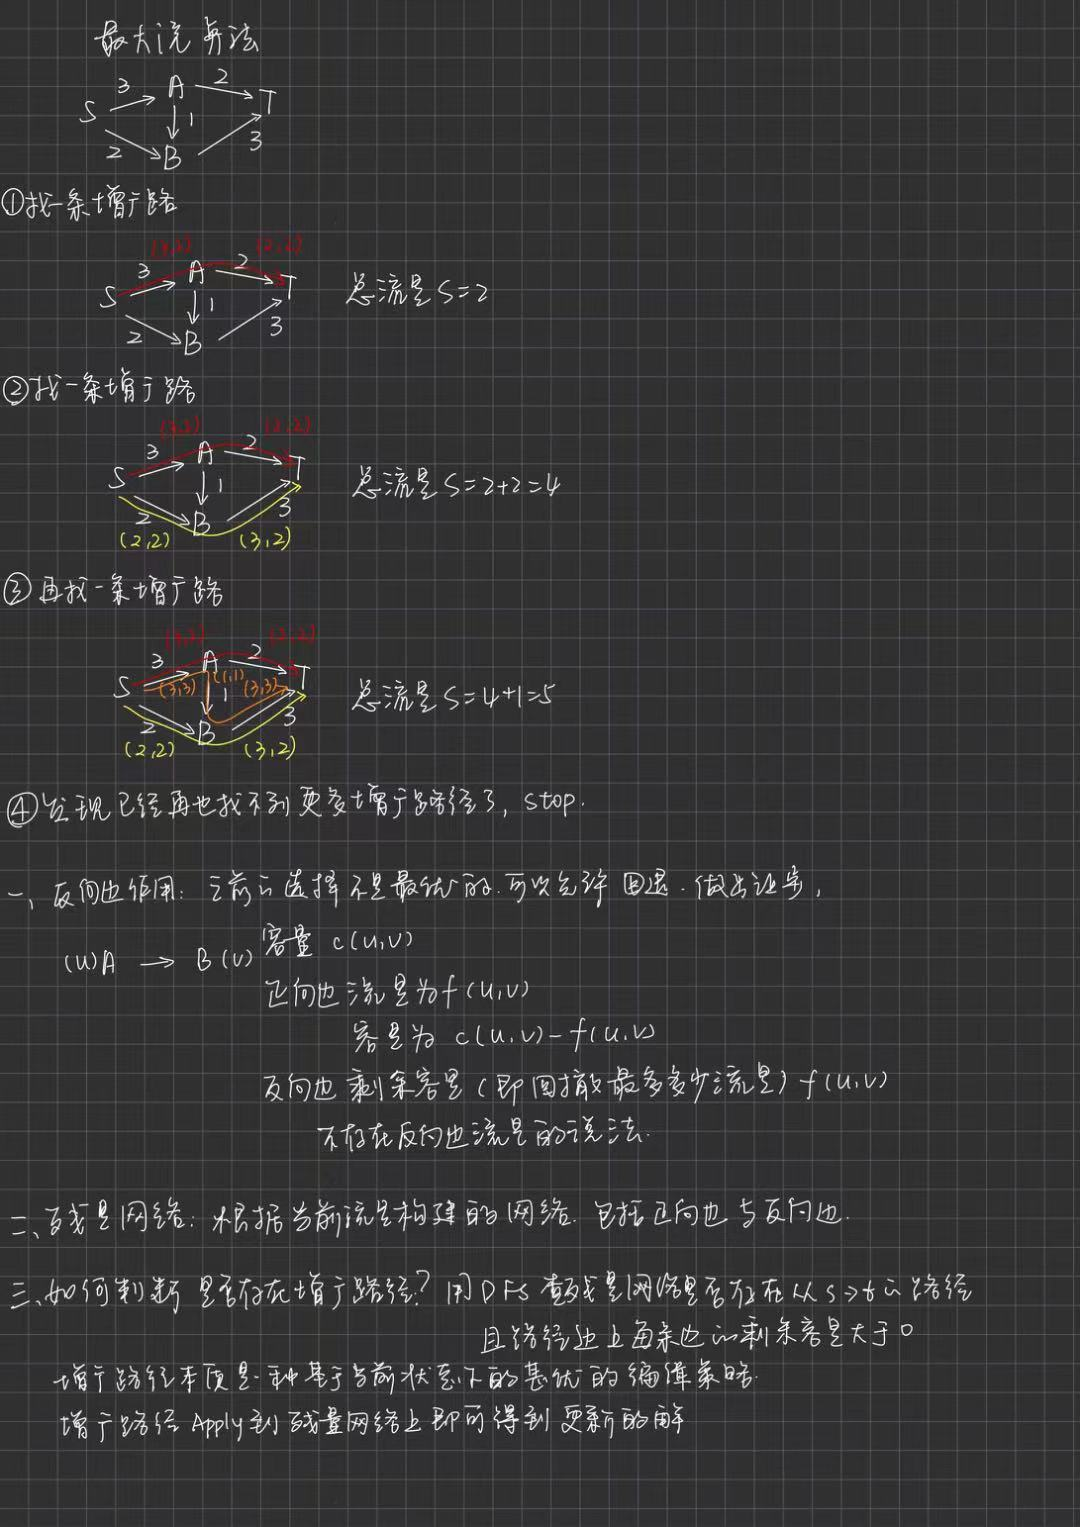 最大流算法
3 A 2
S 1 T
2 B 3
①找一条增广路
(3,2) (2,2)
3 A 2
S 1 T 总流量S=2
2 B 3
②找一条增广路
(3,2) (2,2)
3 A 2
S 1 T 总流量S=2+2=4
2 B 3
(2,2) (3,2)
③再找一条增广路
(3,2) (2,2)
3 A 2
S (3,3) (1,1) 1 (3,3) T 总流量S=4+1=5
2 B 3
(2,2) (3,2)
④发现已经再也找不到更多增广路径了, stop.
一、反向边作用: 之前的选择不是最优的.可以允许回退.做出让步,
(u)A → B(v) 容量 c(u,v)
正向边流量为f(u,v)
容量为 c(u,v)-f(u,v)
反向边剩余容量(即回撤最多多少流量) f(u,v)
不存在反向边流量的说法.
二、残量网络: 根据当前流量构建的网络. 包括正向边与反向边.
三、如何判断是否存在增广路径? 用DFS查残量网络是否存在从s→t的路径
且路径边上每条边的剩余容量大于0
增广路径本质是一种基于当前状态下的更优的编译策略.
增广路径Apply到残量网络上即可得到更新的解